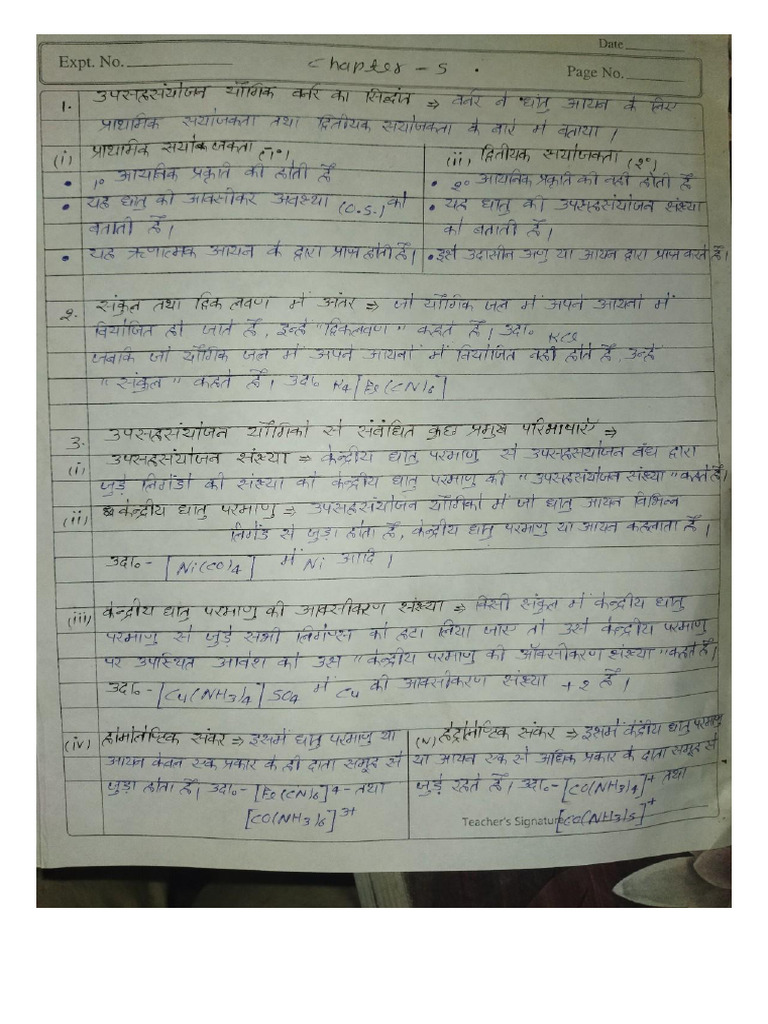 Date
Expt. No.
Chapter - 5 .
Page No.
1. उपसहसंयोजन यौगिक वर्नर का सिद्धांत ⇒ वर्नर ने धातु आयन के लिए
प्राथमिक सयोजकता तथा द्वितीयक सयोजकता के बारे में बताया ।
(i) प्राथमिक सयोजकता (1°)
• 1° आयनिक प्रकृति की होती हैं
• यह धातु की आक्सीकर अवस्था (O.S.) को
बताती हैं ।
• यह ऋणात्मक आयन के द्वारा प्राप्त होती हैं ।
(ii) द्वितीयक सयोजकता (2°)
• 2° आयनिक प्रकृति की नही होती हैं
• यह धातु की उपसहसंयोजन संख्या
को बताती हैं ।
• इसे उदासीन अणु या आयन द्वारा प्राप्त करते हैं ।
2. संकुल तथा द्विक लवण में अंतर ⇒ जो यौगिक जल में अपने आयनो में
वियोजित हो जाते हैं, इन्हे "द्विकलवण" कहते हैं । उदा० KCl
जबकि जो यौगिक जल में अपने आयनों में वियोजित नही होते हैं, उन्हे
"संकुल" कहते हैं । उदा० K4[Fe(CN)6]
3. उपसहसंयोजन यौगिको से संबंधित कुछ प्रमुख परिभाषाएँ ⇒
(i) उपसहसंयोजन संख्या ⇒ केन्द्रीय धातु परमाणु से उपसहसंयोजन बंध द्वारा
जुड़े लिगेंडो की संख्या को केन्द्रीय धातु परमाणु की "उपसहसंयोजन संख्या" कहते हैं ।
(ii) केन्द्रीय धातु परमाणु ⇒ उपसहसंयोजन यौगिको में जो धातु आयन विभिन्न
लिगेंड से जुड़ा होता हैं, केन्द्रीय धातु परमाणु या आयन कहलाता हैं ।
उदा०- [Ni(CO)4] में Ni आदि ।
(iii) केन्द्रीय धातु परमाणु की आक्सीकरण संख्या ⇒ किसी संकुल में केन्द्रीय धातु
परमाणु से जुड़े सभी लिगेण्डस को हटा लिया जाए तो उसे केन्द्रीय परमाणु
पर उपस्थित आवेश को उस "केन्द्रीय परमाणु की ऑक्सीकरण संख्या" कहते हैं ।
उदा०- [Cu(NH3)4]SO4 में Cu की आक्सीकरण संख्या +2 हैं ।
(iv) होमोलेप्टिक संकर ⇒ इसमें धातु परमाणु या
आयन केवल एक प्रकार के ही दाता समूह से
जुड़ा होता हैं । उदा०- [Fe(CN)6]4- तथा
[CO(NH3)6]3+
(v) हेट्रोलेप्टिक संकर ⇒ इसमें केंद्रीय धातु परमाणु
या आयन एक से अधिक प्रकार के दाता समूह से
जुड़े रहते हैं । उदा०- [CO(NH3)4]+ तथा
[CO(NH3)5]+
Teacher's Signature